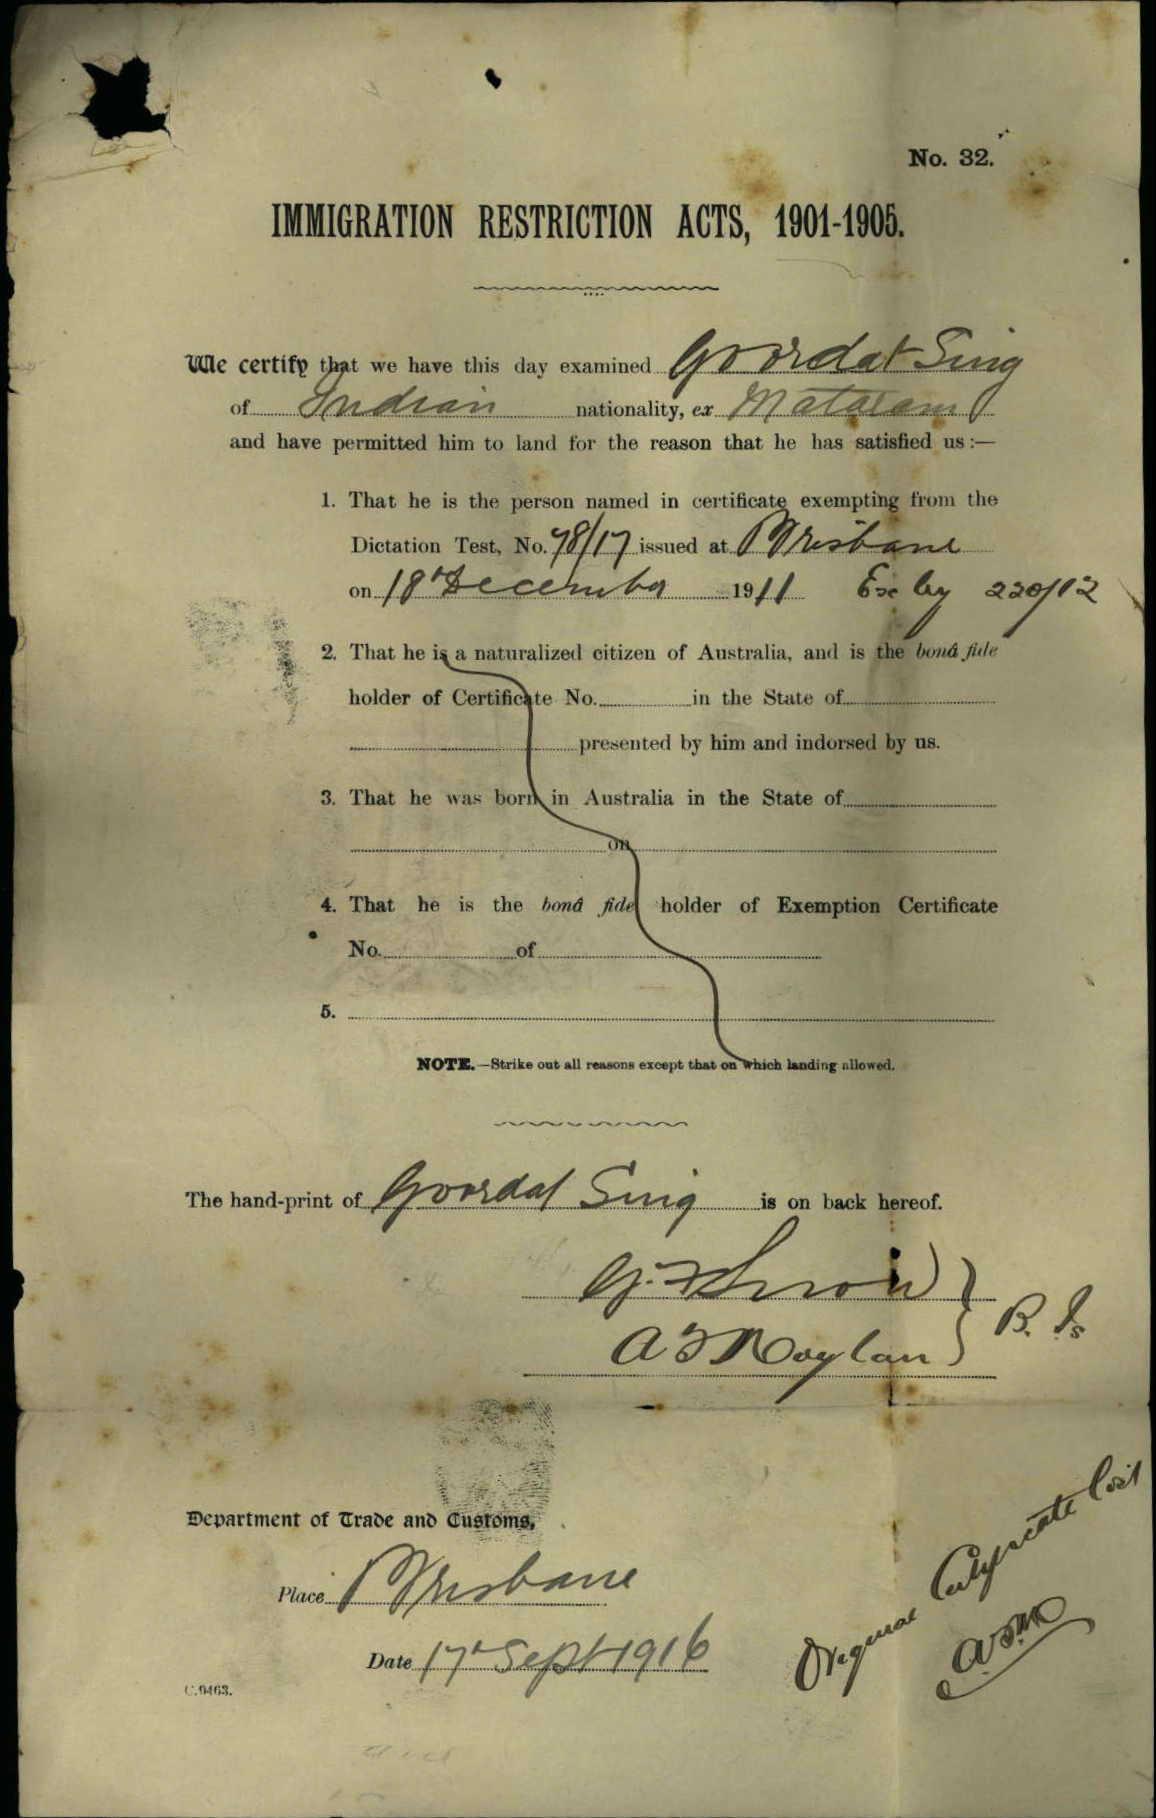 No. 32.
IMMIGRATION RESTRICTION ACTS, 1901-1905.
We certify that we have this day examined Goordat Sing
of Indian nationality, ex Mataram
and have permitted him to land for the reason that he has satisfied us :—
1. That he is the person named in certificate exempting from the
Dictation Test, No. 78/17 issued at Brisbane
on 18th December 1911 Ex by 220/12
2. That he is a naturalized citizen of Australia, and is the bonâ fide
holder of Certificate No. in the State of
presented by him and indorsed by us.
3. That he was born in Australia in the State of
on
4. That he is the bonâ fide holder of Exemption Certificate
No. of
5.
NOTE.—Strike out all reasons except that on which landing allowed.
The hand-print of Goordat Sing is on back hereof.
A F Moylan
Department of Trade and Customs,
Place Brisbane
Date 17th Sept 1916
C.9463.
Original Certificate Lost